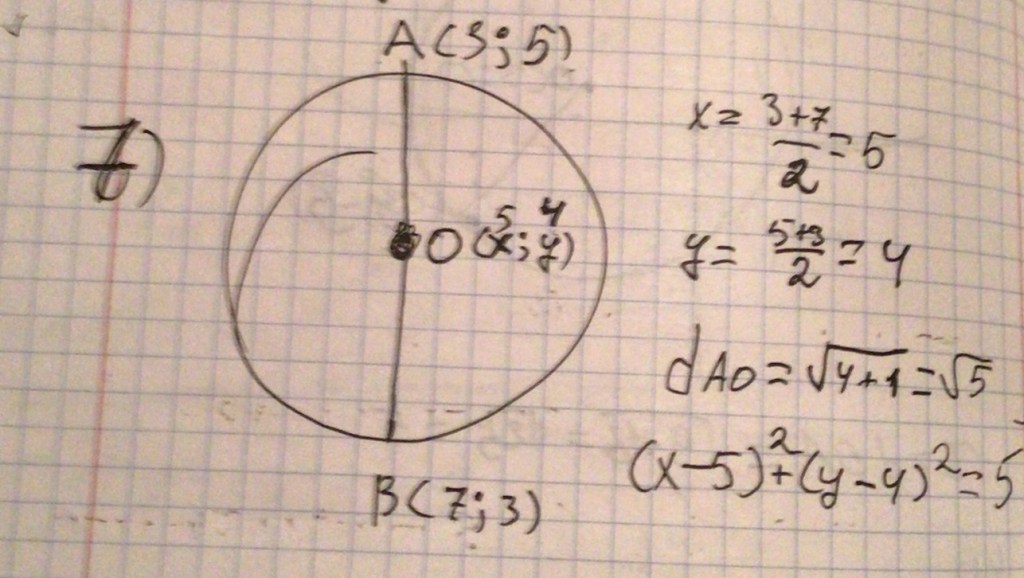 7)
A(3;5)
O(x;y)
5 4
B(7;3)
x = \frac{3+7}{2} = 5
y = \frac{5+3}{2} = 4
dAO = √4+1 = √5
(x-5)²+(y-4)²=5